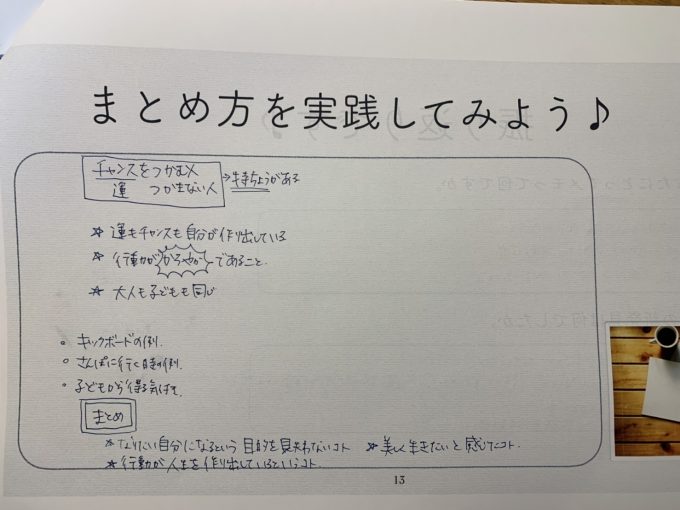 まとめ方を実践してみよう♪
チャンスをつかむ人
運 つかまない人 → 特ちょうがある
☆ 運もチャンスも自分が作り出している
☆ 行動がかろやかであること。
☆ 大人も子どもも同じ
○ キックボードの例。
○ さんぽに行く時の例。
○ 子どもから得る気付き。
まとめ
☆なりたい自分になるという目的を見失わないコト ☆美しく生きたいと感じたコト。
☆行動が人生を作り出しているというコト。
13